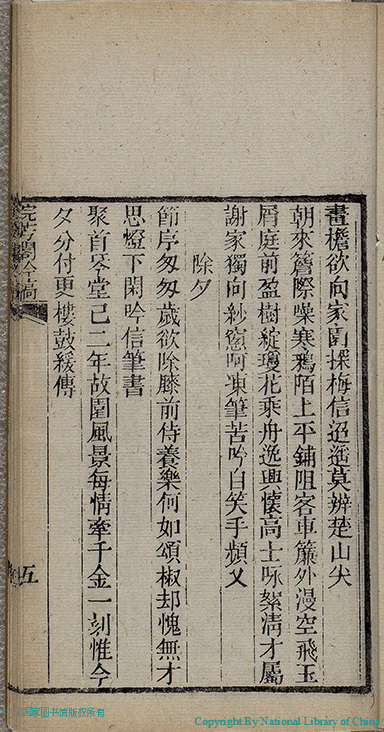 畫檐欲向家園探梅信迢遥莫辨楚山尖
朝來簷際噪寒鴉陌上平鋪阻客車簾外漫空飛玉
屑庭前盈樹綻瓊花乘舟逸興懷高士咏絮淸才屬
謝家獨向紗窻呵凍筆苦吟自笑手頻乂
除夕
節序匆匆歲欲除膝前侍養樂何如頌椒却愧無才
思燈下閑吟信筆書
聚首琴堂已二年故園風景每情牽千金一刻惟今
夕分付更樓鼓緩傳
吟稿
五
中国国家图书馆版权所有
Copyright By National Library of China